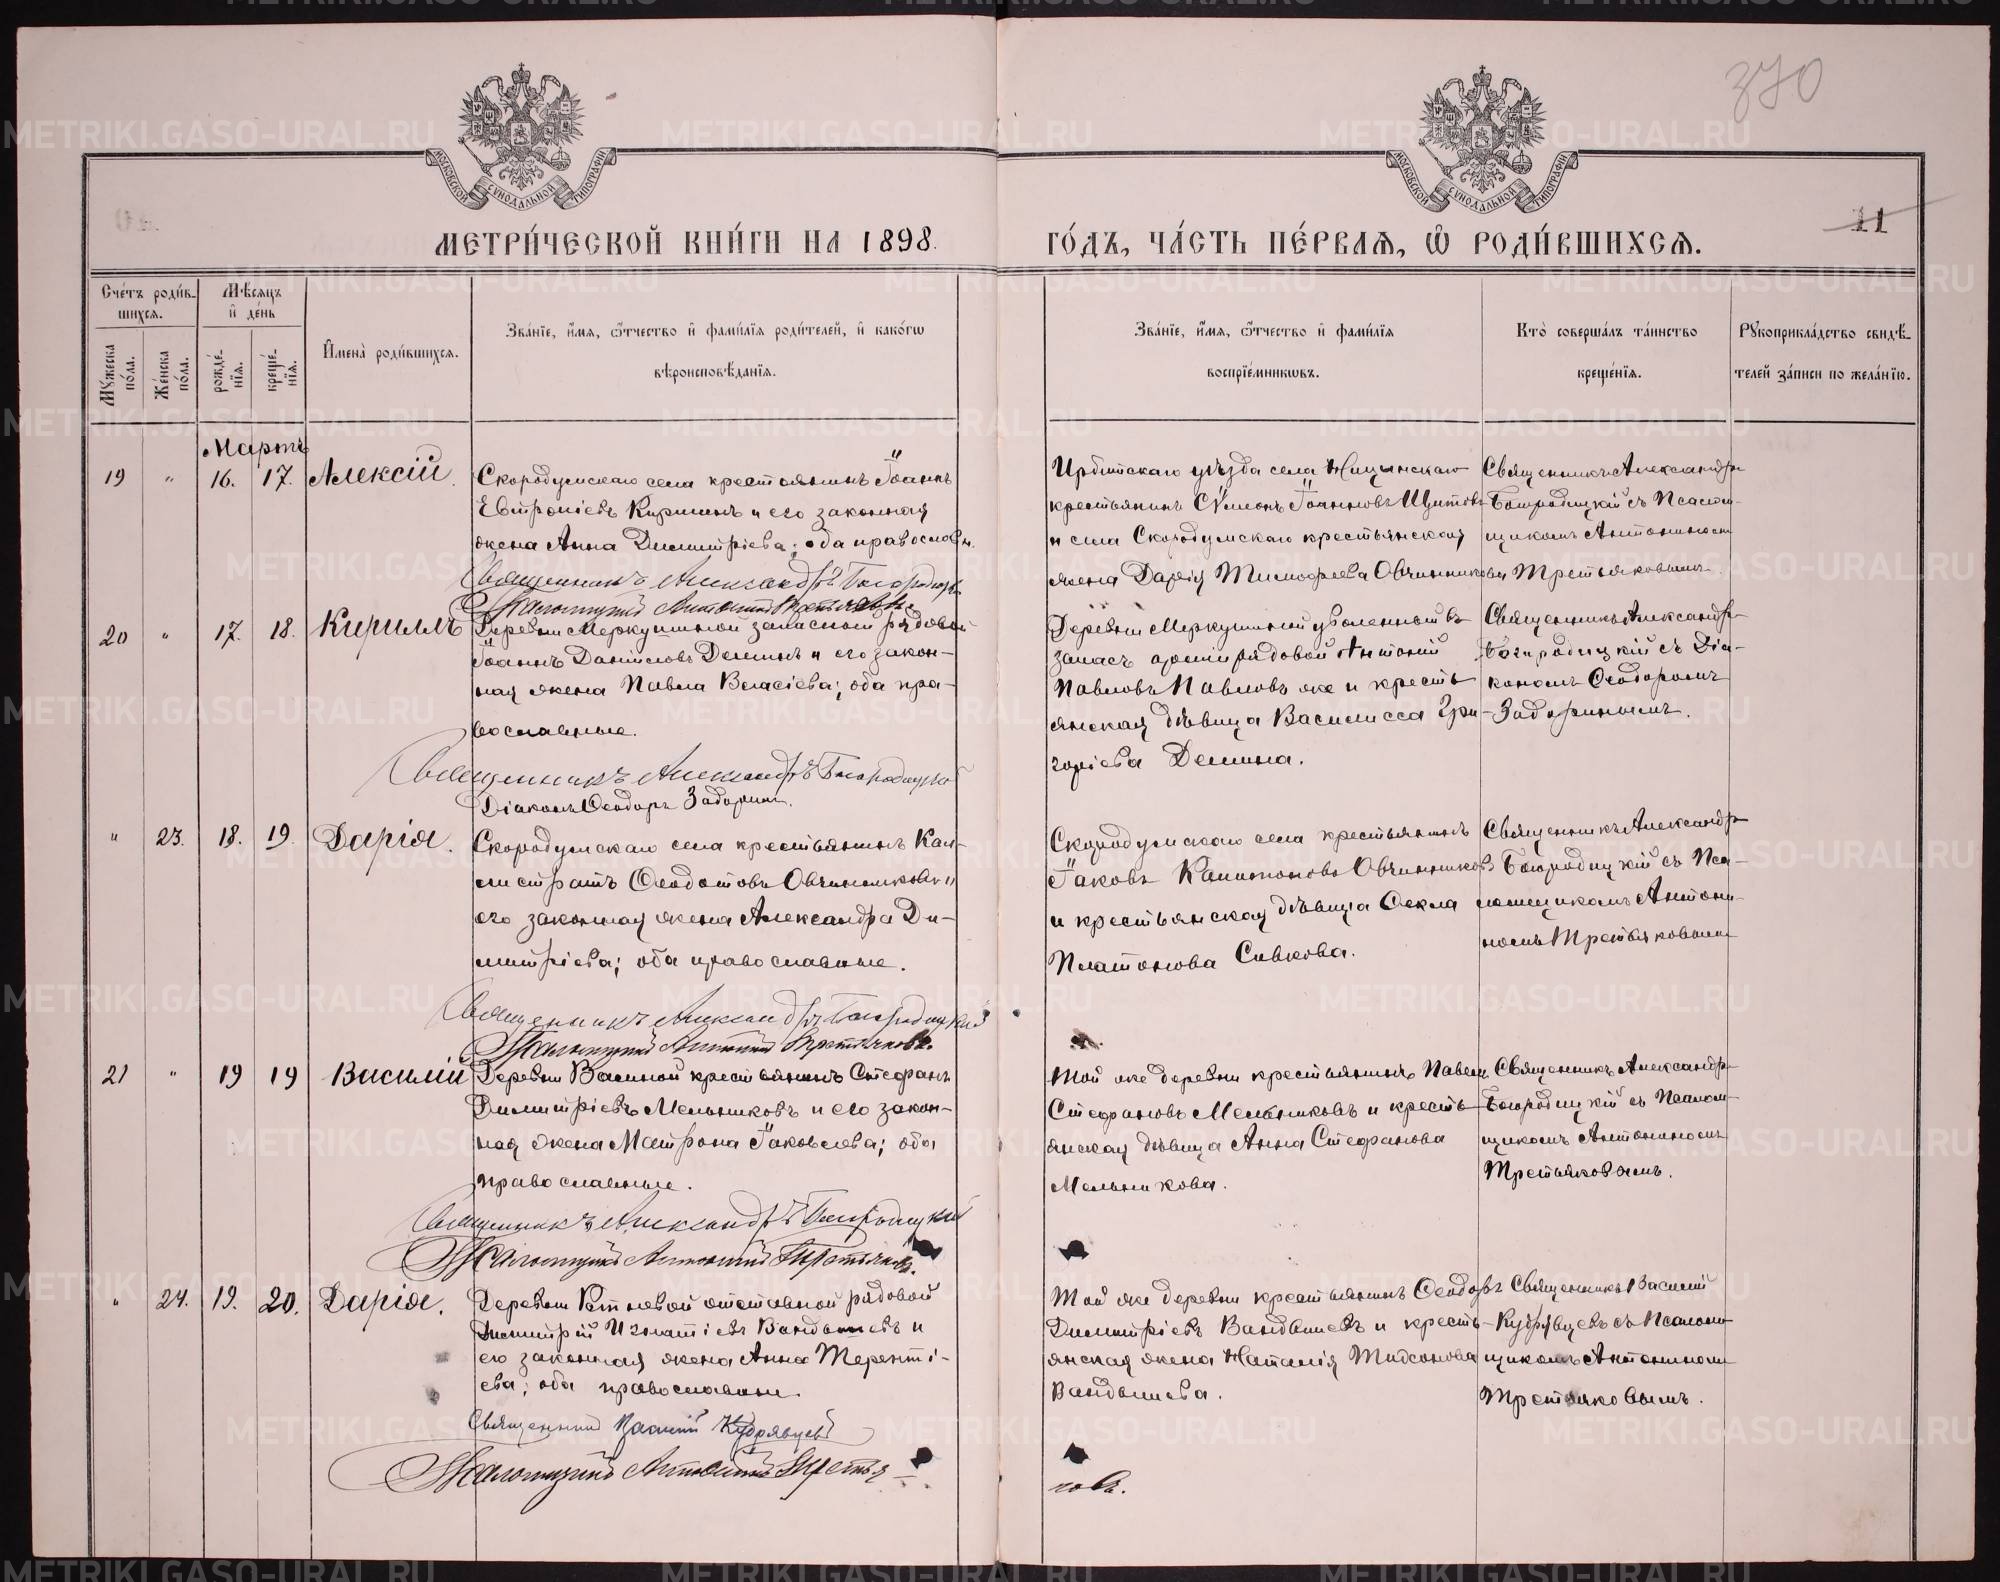 370
11
МОСКОВСКОЙ СѴНОДАЛЬНОЙ ТИПОГРАФІИ
МОСКОВСКОЙ СѴНОДАЛЬНОЙ ТИПОГРАФІИ
МЕТРИ́ЧЕСКОЙ КНИ́ГИ НА 1898.
ГО́ДЪ, ЧА́СТЬ ПЕ́РВАѦ, Ѽ РОДИ́ВШИХСѦ.
Сче́тъ роди́в-
шихсѧ.
Мѣ́сѧцъ
и҆ де́нь
Мꙋ́жеска
по́ла.
Же́нска
по́ла.
рожде́-
нїѧ.
креще́-
нїѧ.
И҆мена̀ роди́вшихсѧ.
Зва́нїе, и҆́мѧ, ѻ҆́тчество и҆ фами́лїѧ роди́телей, и҆ како́гѡ
вѣроисповѣ́данїѧ.
Зва́нїе, и҆́мѧ, ѻ҆́тчество и҆ фами́лїѧ
воспрїе́мникѡвъ.
Кто̀ соверша́лъ та́инство
креще́нїѧ.
Рꙋкоприкла́дство свидѣ́-
телей за́писи по жела́нїю.
Мартъ
19 " 16. 17. Алексій.
Скородумскаго села крестьянинъ Іоаннъ
Евтропіевъ Киршинъ и его законная
жена Анна Димитріева; оба православн.
Священникъ Александръ Богородицкій
Псаломщикъ Антонинъ Третьяковъ.
Ирбитскаго уѣзда села Ницынскаго
крестьянинъ Сѵмеонъ Іоанновъ Щитовъ
и села Скородумскаго крестьянская
жена Дарія Тимофеева Овчинникова
Священникъ Александръ
Богородицкій съ Псалом-
щикомъ Антониномъ
Третьяковымъ.
20 " 17. 18. Кириллъ
Деревни Меркушиной запасный рядовой
Іоаннъ Даніиловъ Деминъ и его закон-
ная жена Павла Власіева; оба пра-
вославные.
Священникъ Александръ Богородицкій
Діаконъ Ѳеодоръ Задоринъ.
Деревни Меркушиной уволенный въ
запасъ арміи рядовой Антоній
Павловъ Павловъ же и кресть-
янская дѣвица Василисса Гри-
горіева Демина.
Священникъ Александръ
Богородицкій съ Діа-
кономъ Ѳеодоромъ
Задоринымъ.
" 23. 18. 19. Дарія.
Скородумскаго села крестьянинъ Кал-
листратъ Ѳеодотовъ Овчинниковъ и
его законная жена Александра Ди-
митріева; оба православные.
Священникъ Александръ Богородицкій
Псаломщикъ Антонинъ Третьяковъ.
Скородумскаго села крестьянинъ
Іаковъ Капитоновъ Овчинниковъ
и крестьянская дѣвица Ѳекла
Платонова Сивкова.
Священникъ Александръ
Богородицкій съ Пса-
ломщикомъ Антони-
номъ Третьяковымъ
21 " 19 19 Василій
Деревни Вяциной крестьянинъ Стефанъ
Димитріевъ Мельниковъ и его закон-
ная жена Матрона Іаковлева; оба
православные.
Священникъ Александръ Богородицкій
Псаломщикъ Антонинъ Третьяковъ.
Той же деревни крестьянинъ Павелъ
Стефановъ Мельниковъ и кресть-
янская дѣвица Анна Стефанова
Мельникова.
Священникъ Александръ
Богородицкій съ Псалом-
щикомъ Антониномъ
Третьяковымъ.
" 24. 19. 20. Дарія.
Деревни отставной рядовой
Димитрій Игнатіевъ Вандышевъ и
его законная жена Анна Теренті-
ева; оба православные.
Священникъ Василій Кудрявцевъ
Псаломщикъ Антонинъ Третья-
ковъ.
Той же деревни крестьянинъ Ѳеодоръ
Димитріевъ Вандышевъ и кресть-
янская жена Наталія Вандышева.
Священникъ Василій
Кудрявцевъ съ Псалом-
щикомъ Антониномъ
Третьяковымъ.
METRIKI.GASO-URAL.RU